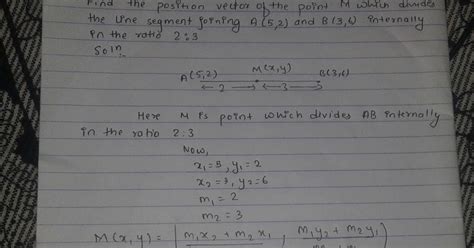 Find the position vector of the point M which divides
the line segment joining A(5,2) and B(3,6) internally
in the ratio 2:3
Soln
A(5,2) M(x,y) B(3,6)
2 3
Here M is point which divides AB internally
in the ratio 2:3
Now,
x₁=5, y₁=2
x₂=3, y₂=6
m₁ = 2
m₂ = 3
M(x,y) = m₁x₂ + m₂x₁ , m₁y₂ + m₂y₁